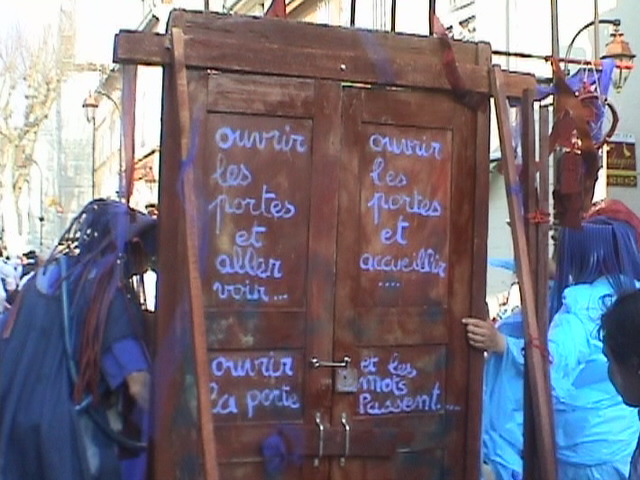 ouvrir
les
portes
et
aller
voir...
ouvrir
les
portes
et
accueillir
....
ouvrir
la porte
et les
mots
Passent....